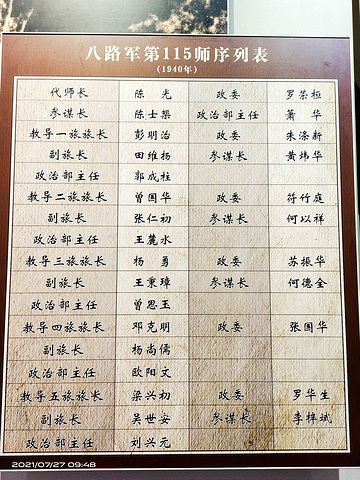 八路军第115师序列表
(1940年)
代师长 陈光 政委 罗荣桓
参谋长 陈士榘 政治部主任 萧华
教导一旅旅长 彭明治 政委 朱涤新
副旅长 田维扬 参谋长 黄炜华
政治部主任 郭成柱
教导二旅旅长 曾国华 政委 符竹庭
副旅长 张仁初 参谋长 何以祥
政治部主任 王麓水
教导三旅旅长 杨勇 政委 苏振华
副旅长 王秉璋 参谋长 何德全
政治部主任 曾思玉
教导四旅旅长 邓克明 政委 张国华
副旅长 杨尚儒
政治部主任 欧阳文
教导五旅旅长 梁兴初 政委 罗华生
副旅长 吴世安 参谋长 李梓斌
政治部主任 刘兴元
2021/07/27 09:48